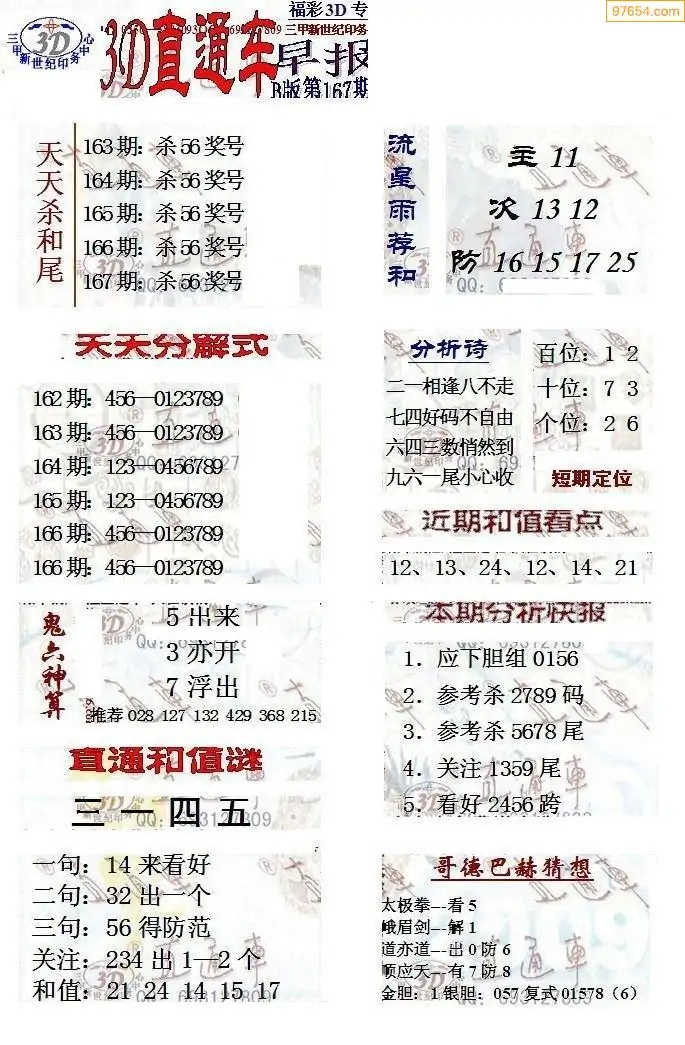 97654.com
福彩3D专
三甲新世纪印务
三甲新世纪印务中心
3D
3D直通车
早报
B版第167期
天天杀和尾
163期：杀56奖号
164期：杀56奖号
165期：杀56奖号
166期：杀56奖号
167期：杀56奖号
流星雨荐和
主 11
次 13 12
防 16 15 17 25
天天分解式
162期：456—0123789
163期：456—0123789
164期：123—0456789
165期：123—0456789
166期：456—0123789
166期：456—0123789
分析诗
二一相逢八不走
七四好码不自由
六四三数悄然到
九六一尾小心收
百位：1 2
十位：7 3
个位：2 6
短期定位
近期和值看点
12、13、24、12、14、21
鬼六神算
5出来
3亦开
7浮出
推荐 028 127 132 429 368 215
本期分析快报
1．应下胆组0156
2．参考杀2789码
3．参考杀5678尾
4．关注1359尾
5．看好2456跨
直通和值谜
三 一 四 五
QQ：693127809
一句：14来看好
二句：32出一个
三句：56得防范
关注：234出1—2个
和值：21 24 14 15 17
哥德巴赫猜想
太极拳---看5
峨眉剑---解1
道亦道---出0防6
顺应天---有7防8
金胆：1银胆：057复式01578（6）